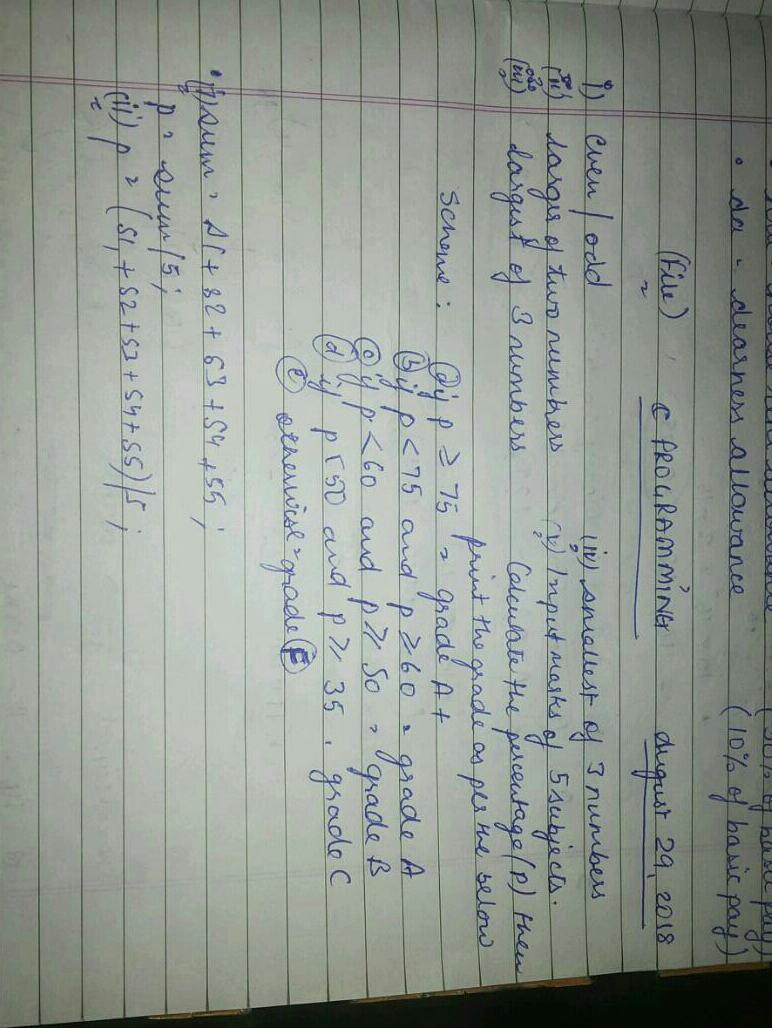 house rent allowance (30% of basic pay)
• da - dearness allowance (10% of basic pay)
(File) C PROGRAMMING August 29, 2018
i) even / odd
(ii) larger of two numbers
(iii) largest of 3 numbers
(iv) smallest of 3 numbers
(v) Input marks of 5 subjects.
Calculate the percentage (P) then
print the grade as per the below
scheme : (a) if p ≥ 75 = grade A +
(b) if p < 75 and p ≥ 60 = grade A
(c) if p < 60 and p ≥ 50 = grade B
(d) if p < 50 and p ≥ 35 = grade C
(e) otherwise = grade E
• (i) sum = S1 + S2 + S3 + S4 + S5 ;
p = sum / 5 ;
(ii) p = (S1 + S2 + S3 + S4 + S5) / 5 ;